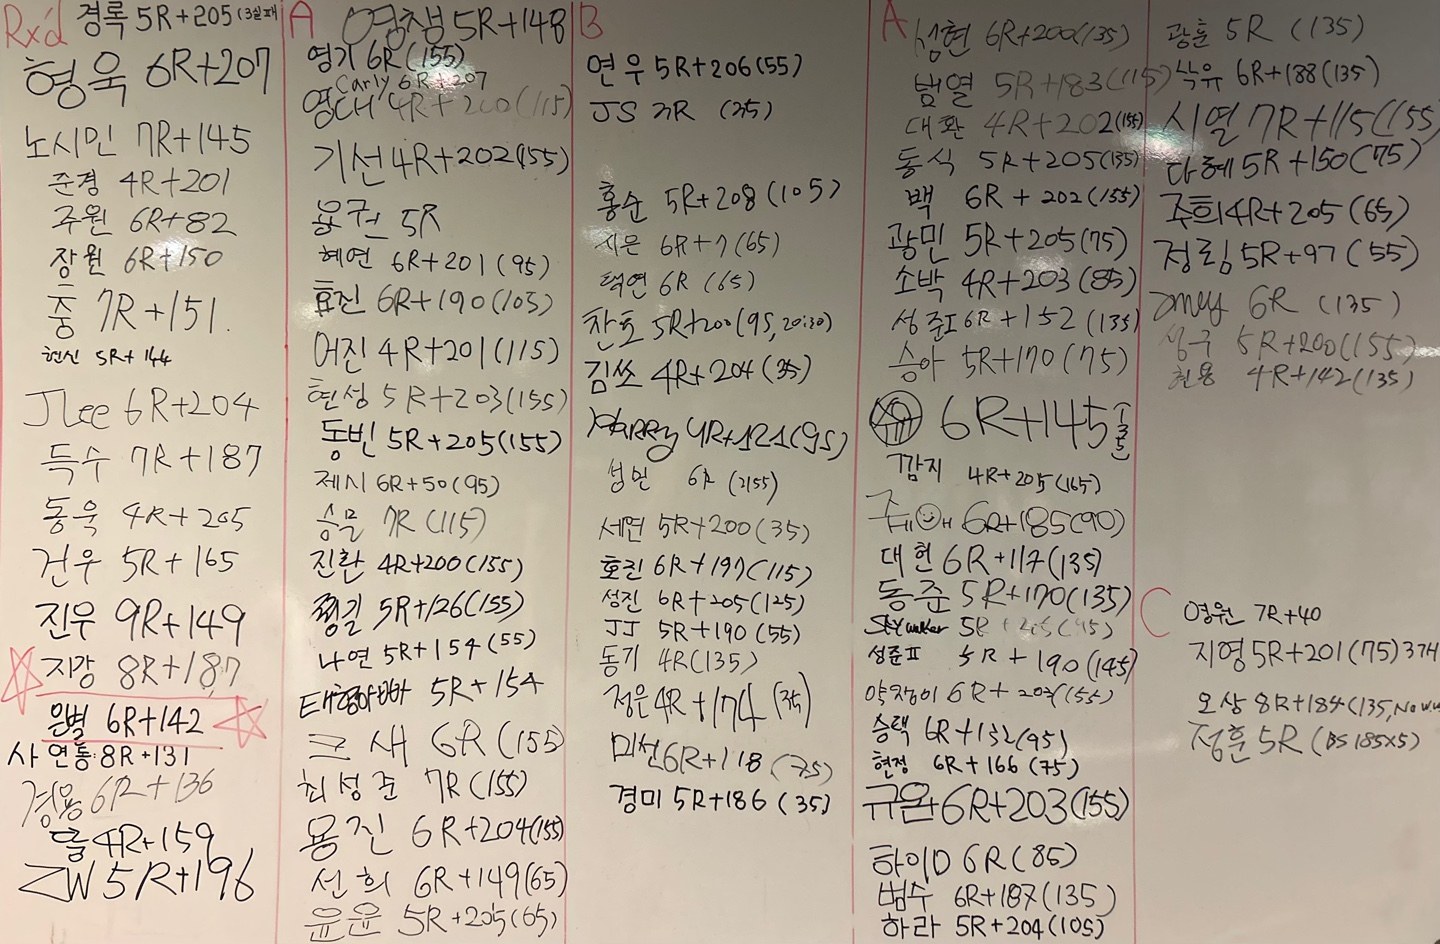 Rx'd
경록 5R+205 (3실패)
형욱 6R+207
노시민 7R+145
준경 4R+201
주원 6R+82
장원 6R+150
충 7R+151.
현신 5R+144
JLee 6R+204
득수 7R+187
동욱 4R+205
건우 5R+165
진우 9R+149
지강 8R+187
은별 6R+142
사 연통 8R+131
경용 6R+136
4R+159
ZW 5R+196
A
영창부 5R+148
영기 6R (155)
Carly 6R+207
영대 4R+200(115)
기선 4R+202(155)
용권 5R
혜연 6R+201 (95)
효진 6R+190(105)
어진 4R+201(115)
현성 5R+203(155)
동빈 5R+205(155)
제시 6R+50(95)
승물 7R (115)
진환 4R+200(155)
5R+126(155)
나연 5R+154 (55)
태형아빠 5R+154
크새 6R (155)
최성준 7R (155)
용진 6R+204(155)
선희 6R+149(65)
윤윤 5R+205(65)
B
연우 5R+206(55)
JS 7R (35)
홍순 5R+208(105)
시은 6R+7(65)
덕연 6R (65)
찬호 5R+200(95, 20:30)
김쏘 4R+204 (35)
Harry 4R+121(95)
성민 6R
세연 5R+200(35)
효진 6R+197(115)
성진 6R+205(125)
JJ 5R+190 (55)
동기 4R(135)
정은 4R+174 (35)
미선 6R+118 (75)
경미 5R+186 (35)
A
성현 6R+200(135)
범열 5R+183(115)
대환 4R+202(155)
동식 5R+205(135)
백 6R+202(155)
광민 5R+205(75)
소박 4R+203(85)
성준I 6R+152 (135)
승아 5R+170(75)
6R+145 (135)
깜지 4R+205(165)
6R+185(90)
대헌 6R+117(135)
동준 5R+170(135)
Skywalker 5R+205(95)
성준II 5R+190(145)
약쟁이 6R+203(155)
승택 6R+132(95)
현정 6R+166 (75)
규완 6R+203(155)
하이D 6R(85)
범수 6R+187(135)
하라 5R+204(105)
광훈 5R (135)
낙유 6R+188(135)
시열 7R+115(155)
다혜 5R+150(75)
주희 4R+205(65)
정림 5R+97 (55)
6R (135)
성구 5R+200(155)
현용 4R+142(135)
C
영원 7R+40
지영 5R+201(75)
오상 8R+184(135, No
정훈 5R (BS 185x5)